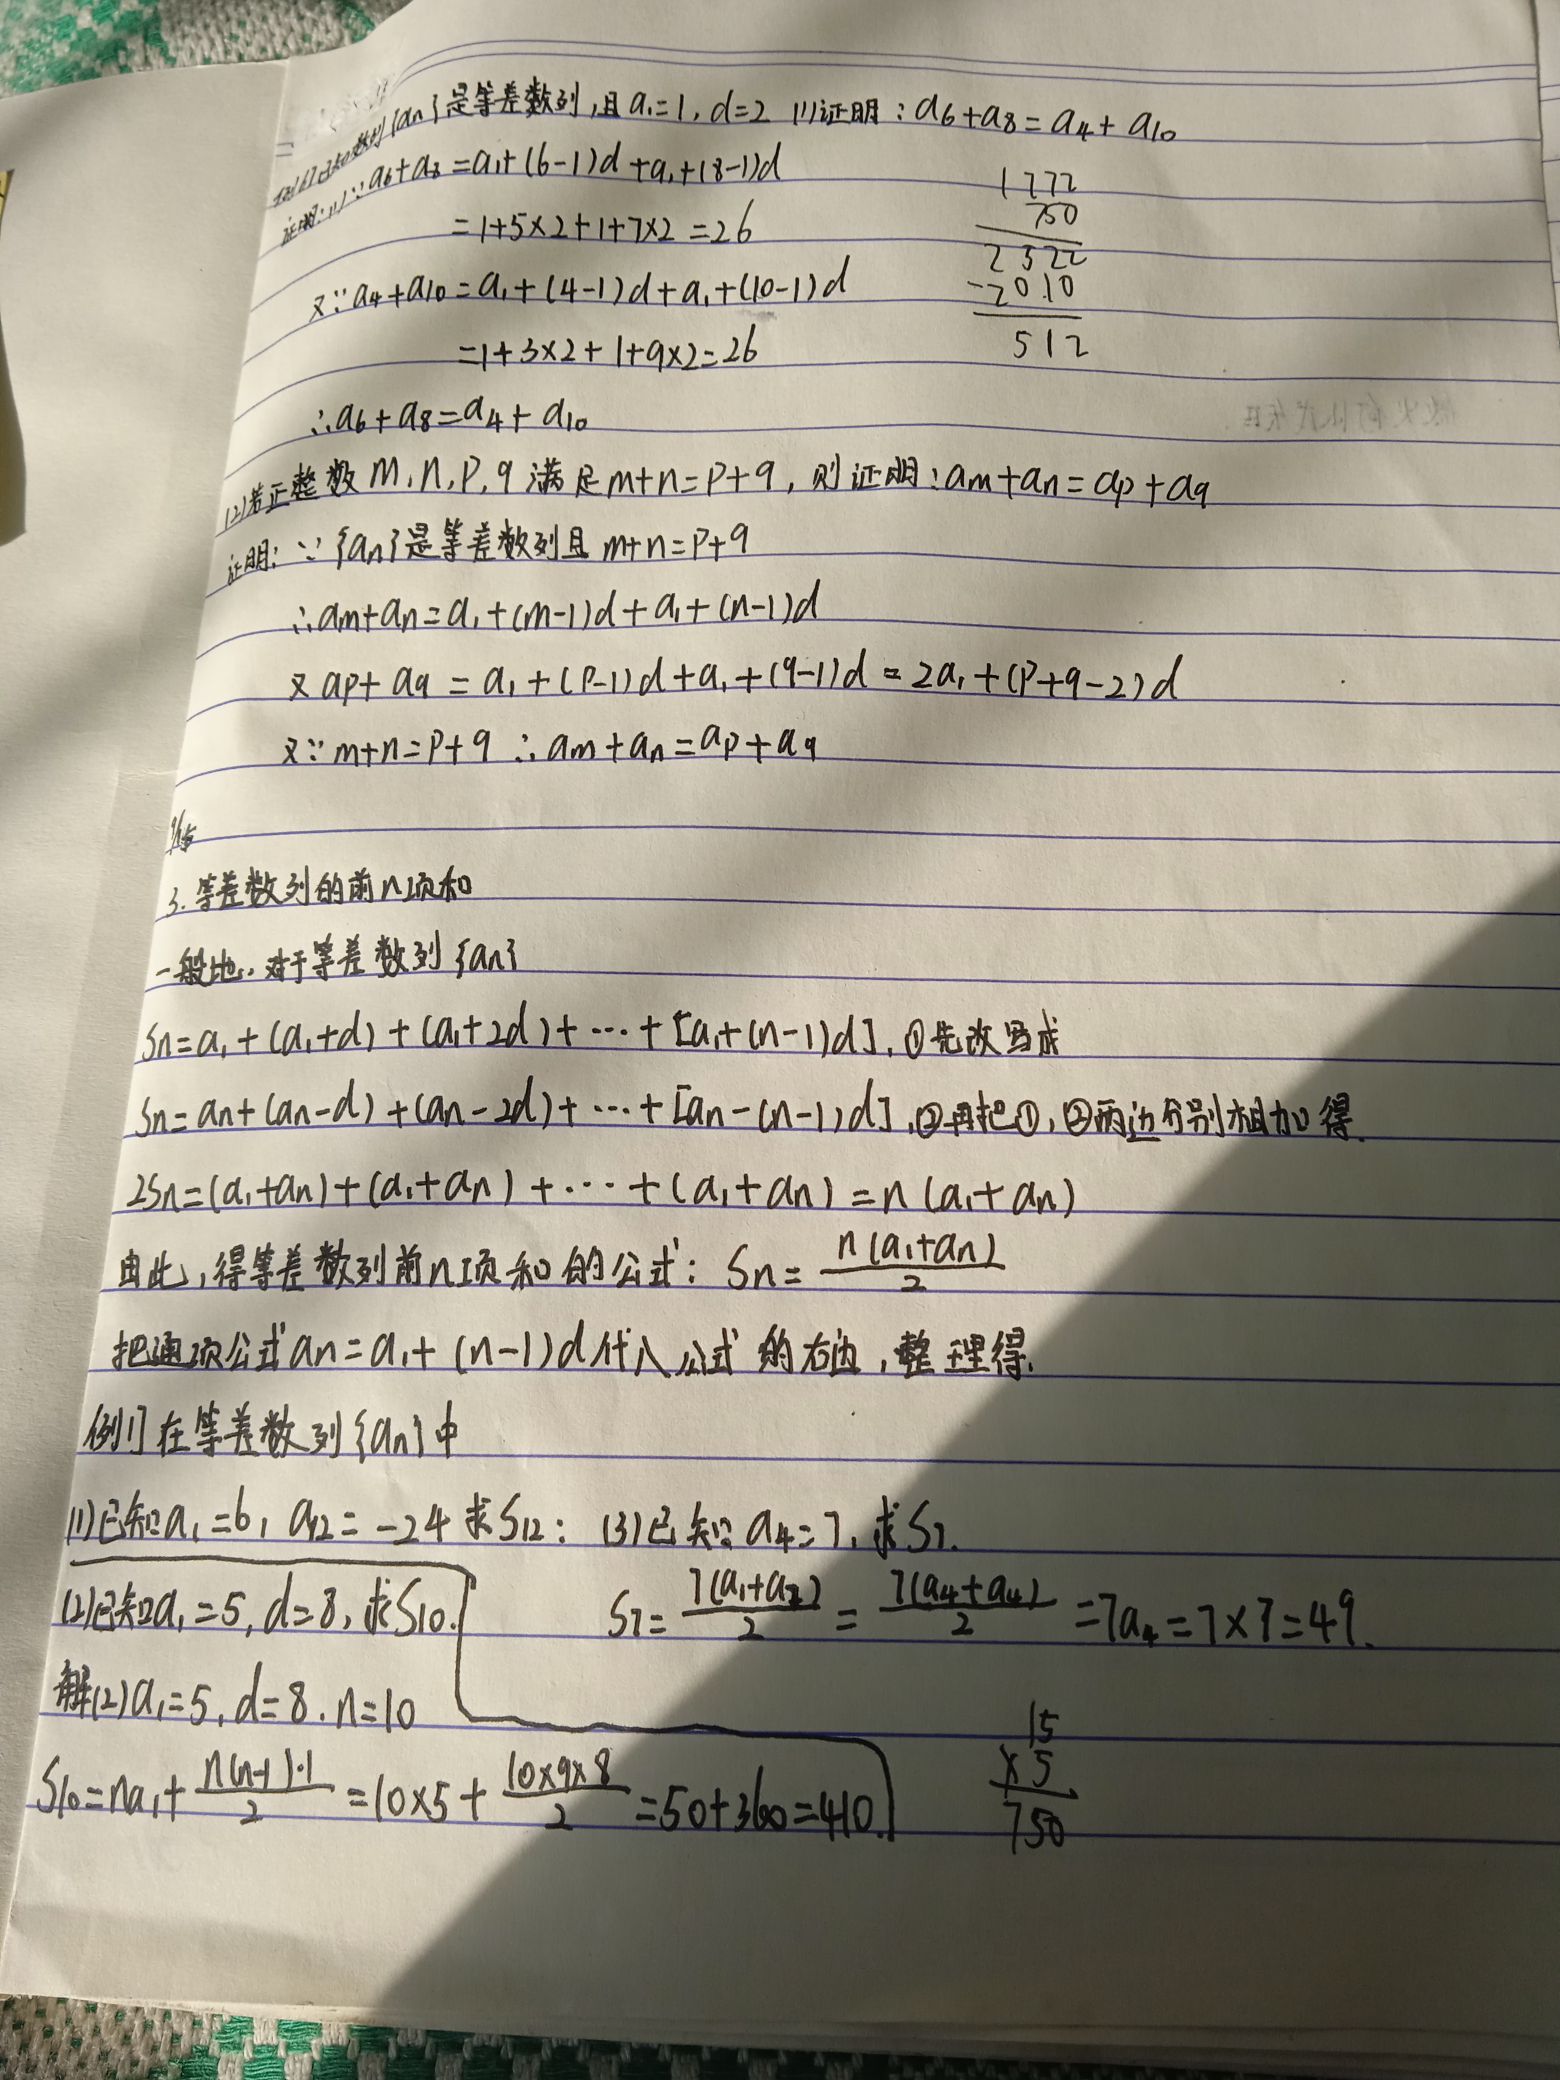 已知数列{an}是等差数列,且a₁=1,d=2 (1)证明:a₆+a₈=a₄+a₁₀
证明:(1)∵a₆+a₈=a₁+(6-1)d+a₁+(8-1)d
=1+5×2+1+7×2=26
又∵a₄+a₁₀=a₁+(4-1)d+a₁+(10-1)d
=1+3×2+1+9×2=26
∴a₆+a₈=a₄+a₁₀
1772
750
2522
-2010
512
(2)若正整数m,n,p,q满足m+n=p+q,则证明:am+an=ap+aq
证明:∵{an}是等差数列且m+n=p+q
∴am+an=a₁+(m-1)d+a₁+(n-1)d
又ap+aq=a₁+(p-1)d+a₁+(q-1)d=2a₁+(p+q-2)d
又∵m+n=p+q ∴am+an=ap+aq
3.等差数列的前n项和
一般地.对于等差数列{an}
Sn=a₁+(a₁+d)+(a₁+2d)+…+[a₁+(n-1)d],①先改写成
Sn=an+(an-d)+(an-2d)+…+[an-(n-1)d],②再把①,②两边分别相加得.
2Sn=(a₁+an)+(a₁+an)+…+(a₁+an)=n(a₁+an)
由此,得等差数列前n项和的公式:Sn=n(a₁+an)/2
把通项公式an=a₁+(n-1)d代入公式的右边,整理得.
例1]在等差数列{an}中
(1)已知a₁=6,a₁₂=-24求S₁₂: (3)已知:a₄=7,求S₇.
(2)已知a₁=5,d=8,求S₁₀.
S₇=7(a₁+a₇)/2=7(a₄+a₄)/2=7a₄=7×7=49.
解(2)a₁=5,d=8.n=10
S₁₀=na₁+n(n-1)·1/2=10×5+10×9×8/2=50+360=410.
15
×5
750